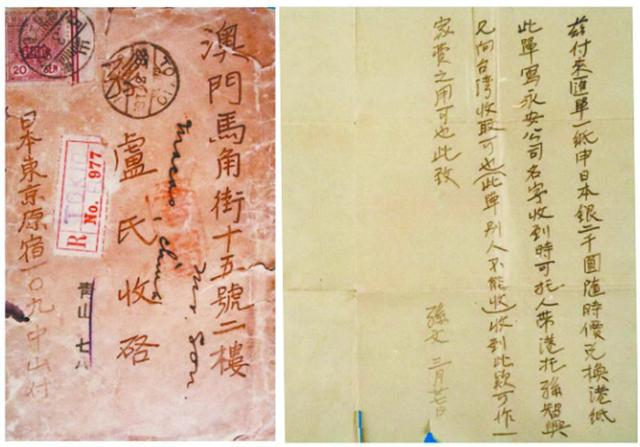 澳門馬角街十五號二樓
孫
盧氏收啓
Macao China
Mrs. Son.
日本東京原宿一〇九中山付
TOKIO
R No. 977
青山
20
TOKIO
茲付来匯單一紙申日本銀二千圓隨時價兑換港紙
此單寫永安公司名字收到時可托人帶港托孫智興
兄向台灣收取可也(此單別人不能收)收到此欵可作一
家費之用可也此致
孫文 三月廿七日